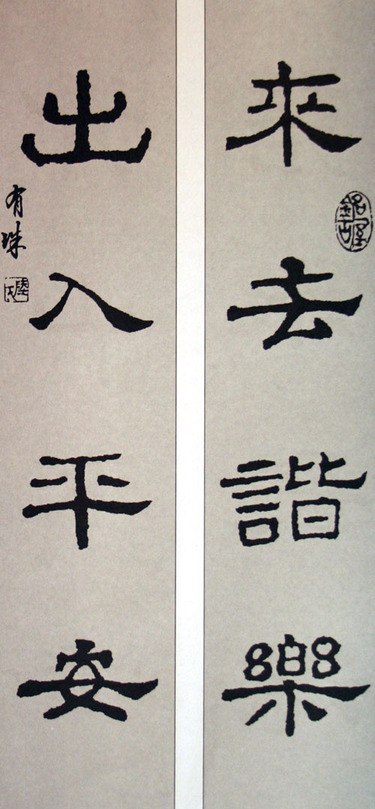 來去諧樂
出入平安
有珠